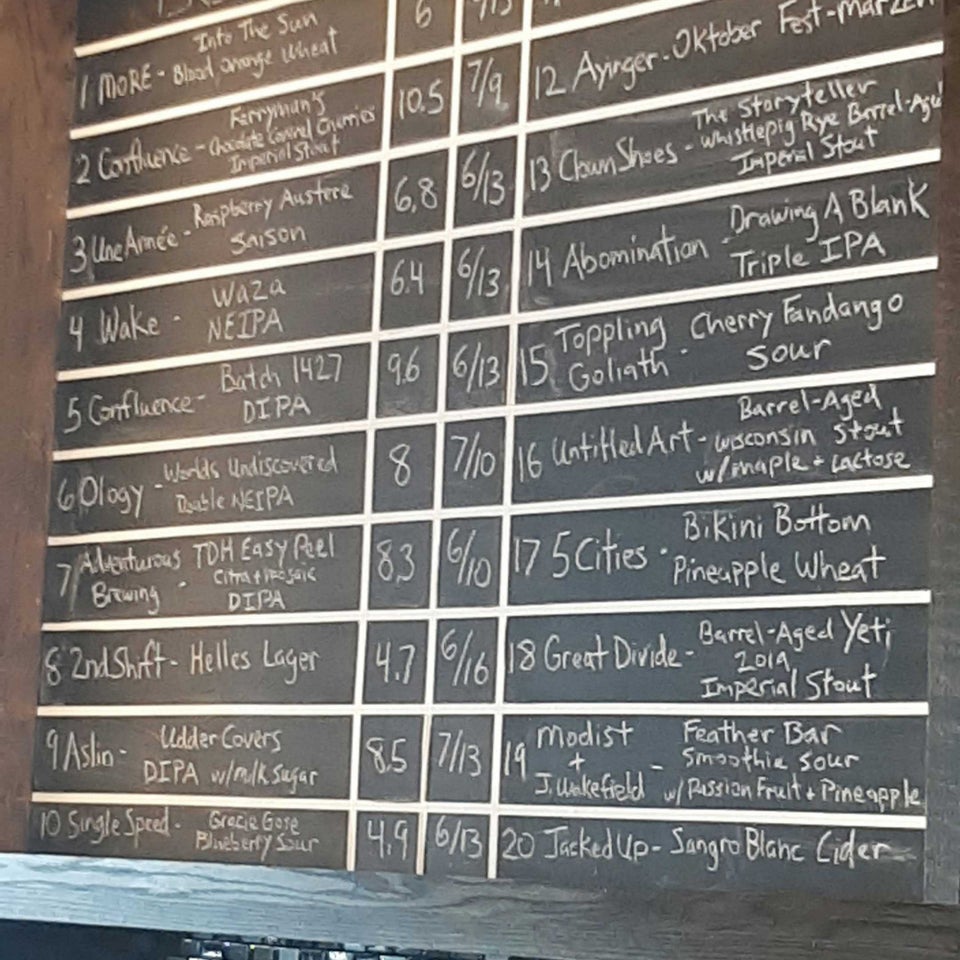 Into The Sun
1 MORE - Blood Orange Wheat 6
Ferryman's
2 Confluence - Chocolate Covered Cherries 10.5 7/9
Imperial Stout
3 Une Année - Raspberry Austere 6.8 6/13
Saison
4 Wake - Waza 6.4 6/13
NEIPA
5 Confluence - Batch 1427 9.6 6/13
DIPA
6 Ology - Worlds Undiscovered 8 7/10
Double NEIPA
7 Adventurous TDH Easy Peel 8.3 6/10
Brewing - Citra + Mosaic
DIPA
8 2nd Shift - Helles Lager 4.7 6/16
9 Aslin - Udder Covers 8.5 7/13
DIPA w/milk sugar
10 Single Speed - Gracie Gose 4.9 6/13
Blueberry Sour
12 Ayinger - Oktober Fest - Marzen
The Storyteller
13 Clown Shoes - Whistlepig Rye Barrel-Aged
Imperial Stout
14 Abomination - Drawing A Blank
Triple IPA
15 Toppling - Cherry Fandango
Goliath Sour
Barrel-Aged
16 Untitled Art - Wisconsin Stout
w/maple + Lactose
17 5 Cities - Bikini Bottom
Pineapple Wheat
Barrel-Aged Yeti
18 Great Divide - 2019
Imperial Stout
Modist Feather Bar
19 + - Smoothie Sour
J. Wakefield w/ Passion Fruit + Pineapple
20 Jacked Up - Sangro Blanc Cider